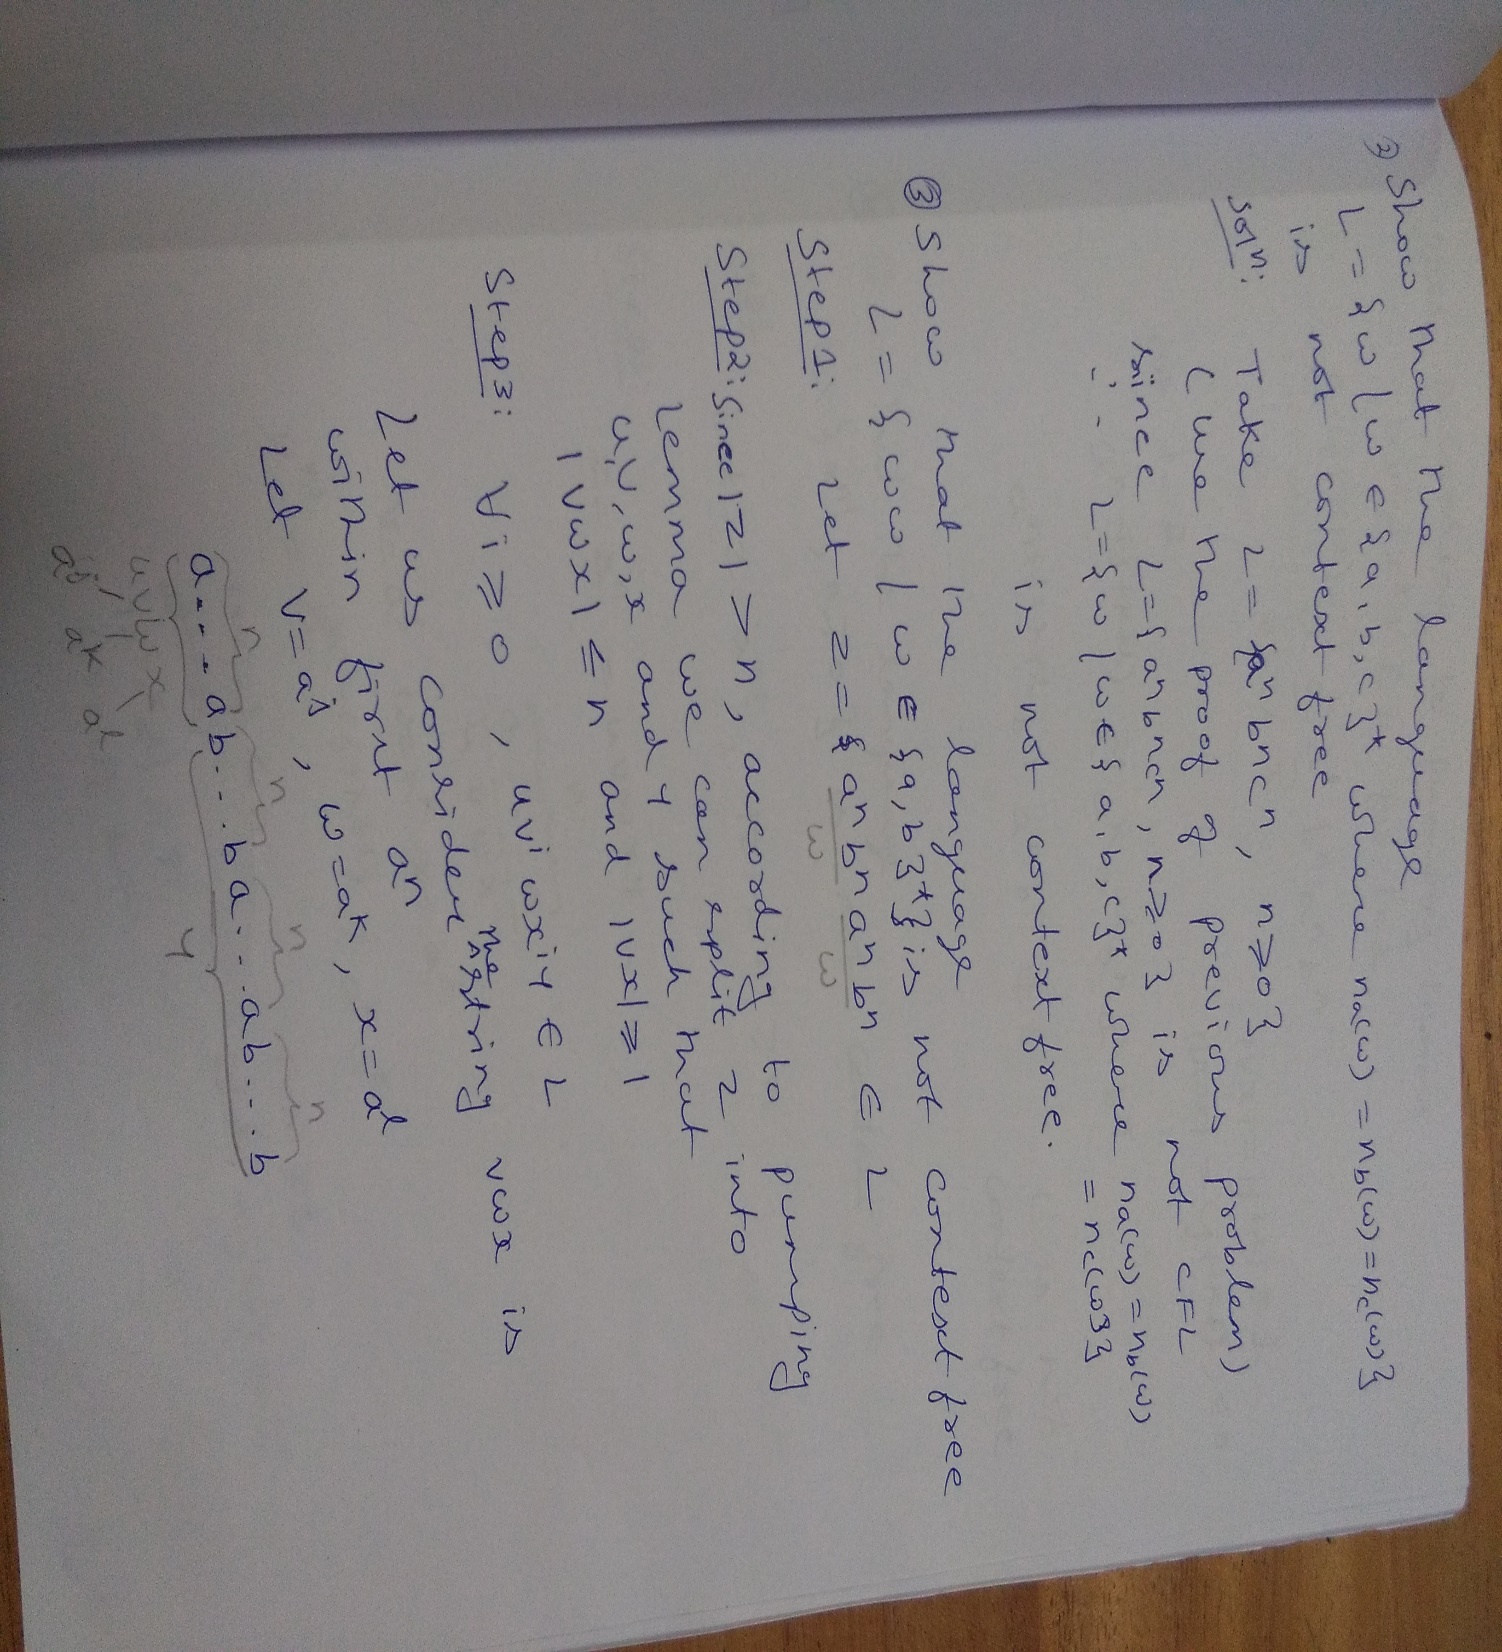 2) Show that the language
L = {w | w ∈ {a, b, c}* where na(w) = nb(w) = nc(w)}
is not context free
Solⁿ: Take L = {aⁿ bⁿ cⁿ, n ≥ 0}
(use the proof of previous problem)
since L = {aⁿ bⁿ cⁿ, n ≥ 0} is not CFL
∴ L = {w | w ∈ {a, b, c}* where na(w) = nb(w)
= nc(w)}
is not context free.
③ Show that the language
L = {ww | w ∈ {a, b}*} is not context free
Step1: Let z = {aⁿ bⁿ aⁿ bⁿ ∈ L
w w
Step2: Since |z| > n, according to pumping
Lemma we can split z into
u, v, w, x and y such that
|vwx| ≤ n and |vx| ≥ 1
Step3: ∀ i ≥ 0, uvⁱ wxⁱy ∈ L
Let us consider the string vwx is
within first aⁿ
Let v = aʲ, w = aᵏ, x = aˡ
n n n n
a...ab...ba...ab...b
u v w x y
aʲ aᵏ aˡ